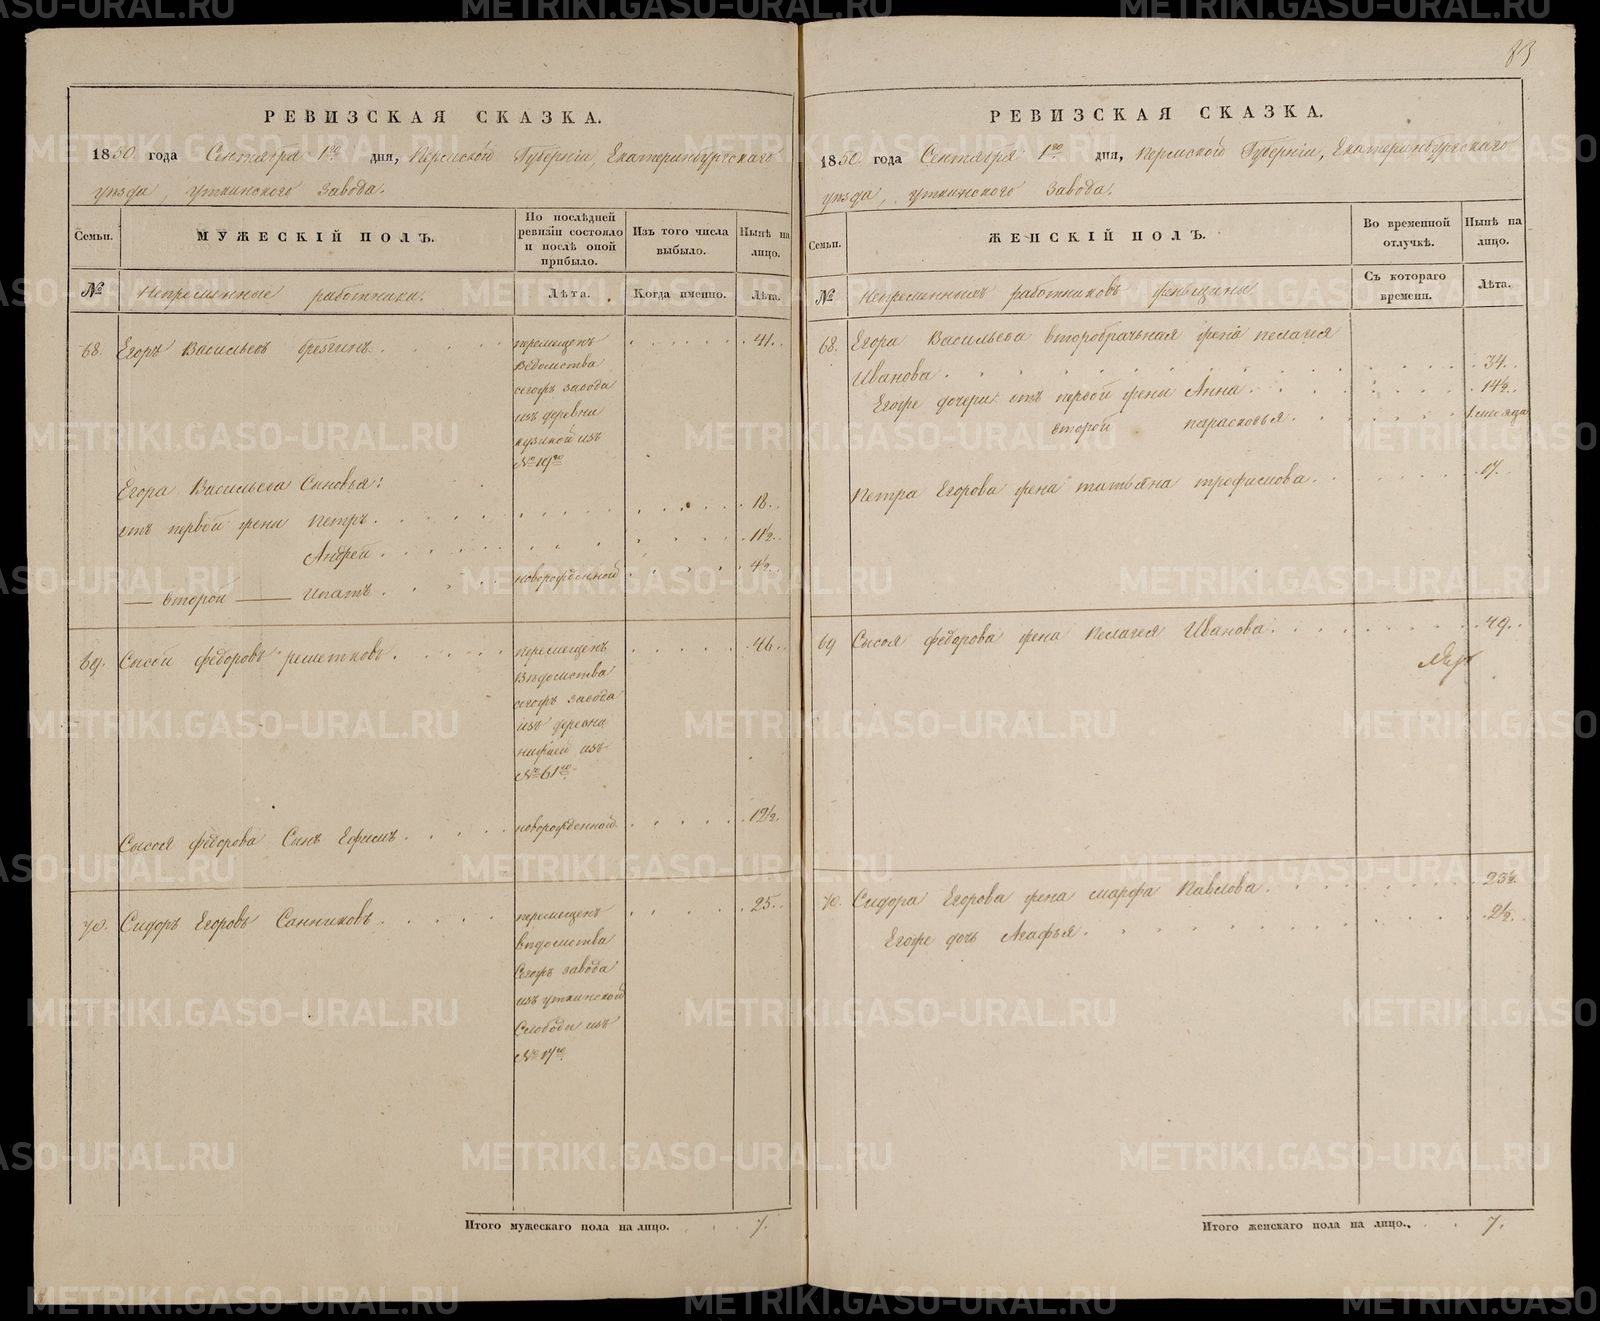 83
РЕВИЗСКАЯ СКАЗКА.
1850 года Сентября 1го дня, Пермской Губернiи, Екатеринбургскаго
уѣзда, Уткинского завода.
Семьи.
МУЖЕСКIЙ ПОЛЪ.
По послѣдней ревизiи состояло и послѣ оной прибыло.
Изъ того числа выбыло.
Нынѣ на лицо.
№
Непремѣнные работники.
Лѣта.
Когда именно.
Лѣта.
68. Егоръ Васильевъ 41.
перемещенъ
ведомства
сегожъ завода
изъ деревни
изъ
№ 19го
Егора Васильева Сыновья:
отъ первой жены Петръ. 18.
Андрей. 11½.
— второй — Ипатъ. новорожденной 4½.
69. Сысой Федоровъ решетковъ. 46.
перемещенъ
вѣдомства
сегожъ завода
изъ деревни
нижней изъ
№ 61го
Сысоя Федорова Сынъ Ефимъ. новорожденной 12½.
70. Сидоръ Егоровъ Санниковъ. 25.
перемещенъ
вѣдомства
Сегожъ завода
изъ уткинской
Слободы изъ
№ 17го
Итого мужескаго пола на лицо. 7.
РЕВИЗСКАЯ СКАЗКА.
1850 года Сентября 1го дня, Пермской Губернiи, Екатеринбургскаго
уѣзда, Уткинского завода.
Семьи.
ЖЕНСКIЙ ПОЛЪ.
Во временной отлучкѣ.
Нынѣ на лицо.
№
Непременныхъ работниковъ женщины
Съ котораго времени.
Лѣта.
68. Егора Васильева второбрачная жена Пелагея
Иванова. 34.
Егоже дочери: отъ первой жены Анна. 14½.
второй парасковья. 1 месяца
Петра Егорова жена татьяна трофимова. 17.
69 Сысоя Федорова жена Пелагея Иванова. 49.
70. Сидора Егорова жена марфа Павлова. 23½.
Егоже дочь Агафья. 2½.
Итого женскаго пола на лицо. 7.
METRIKI.GASO-URAL.RU